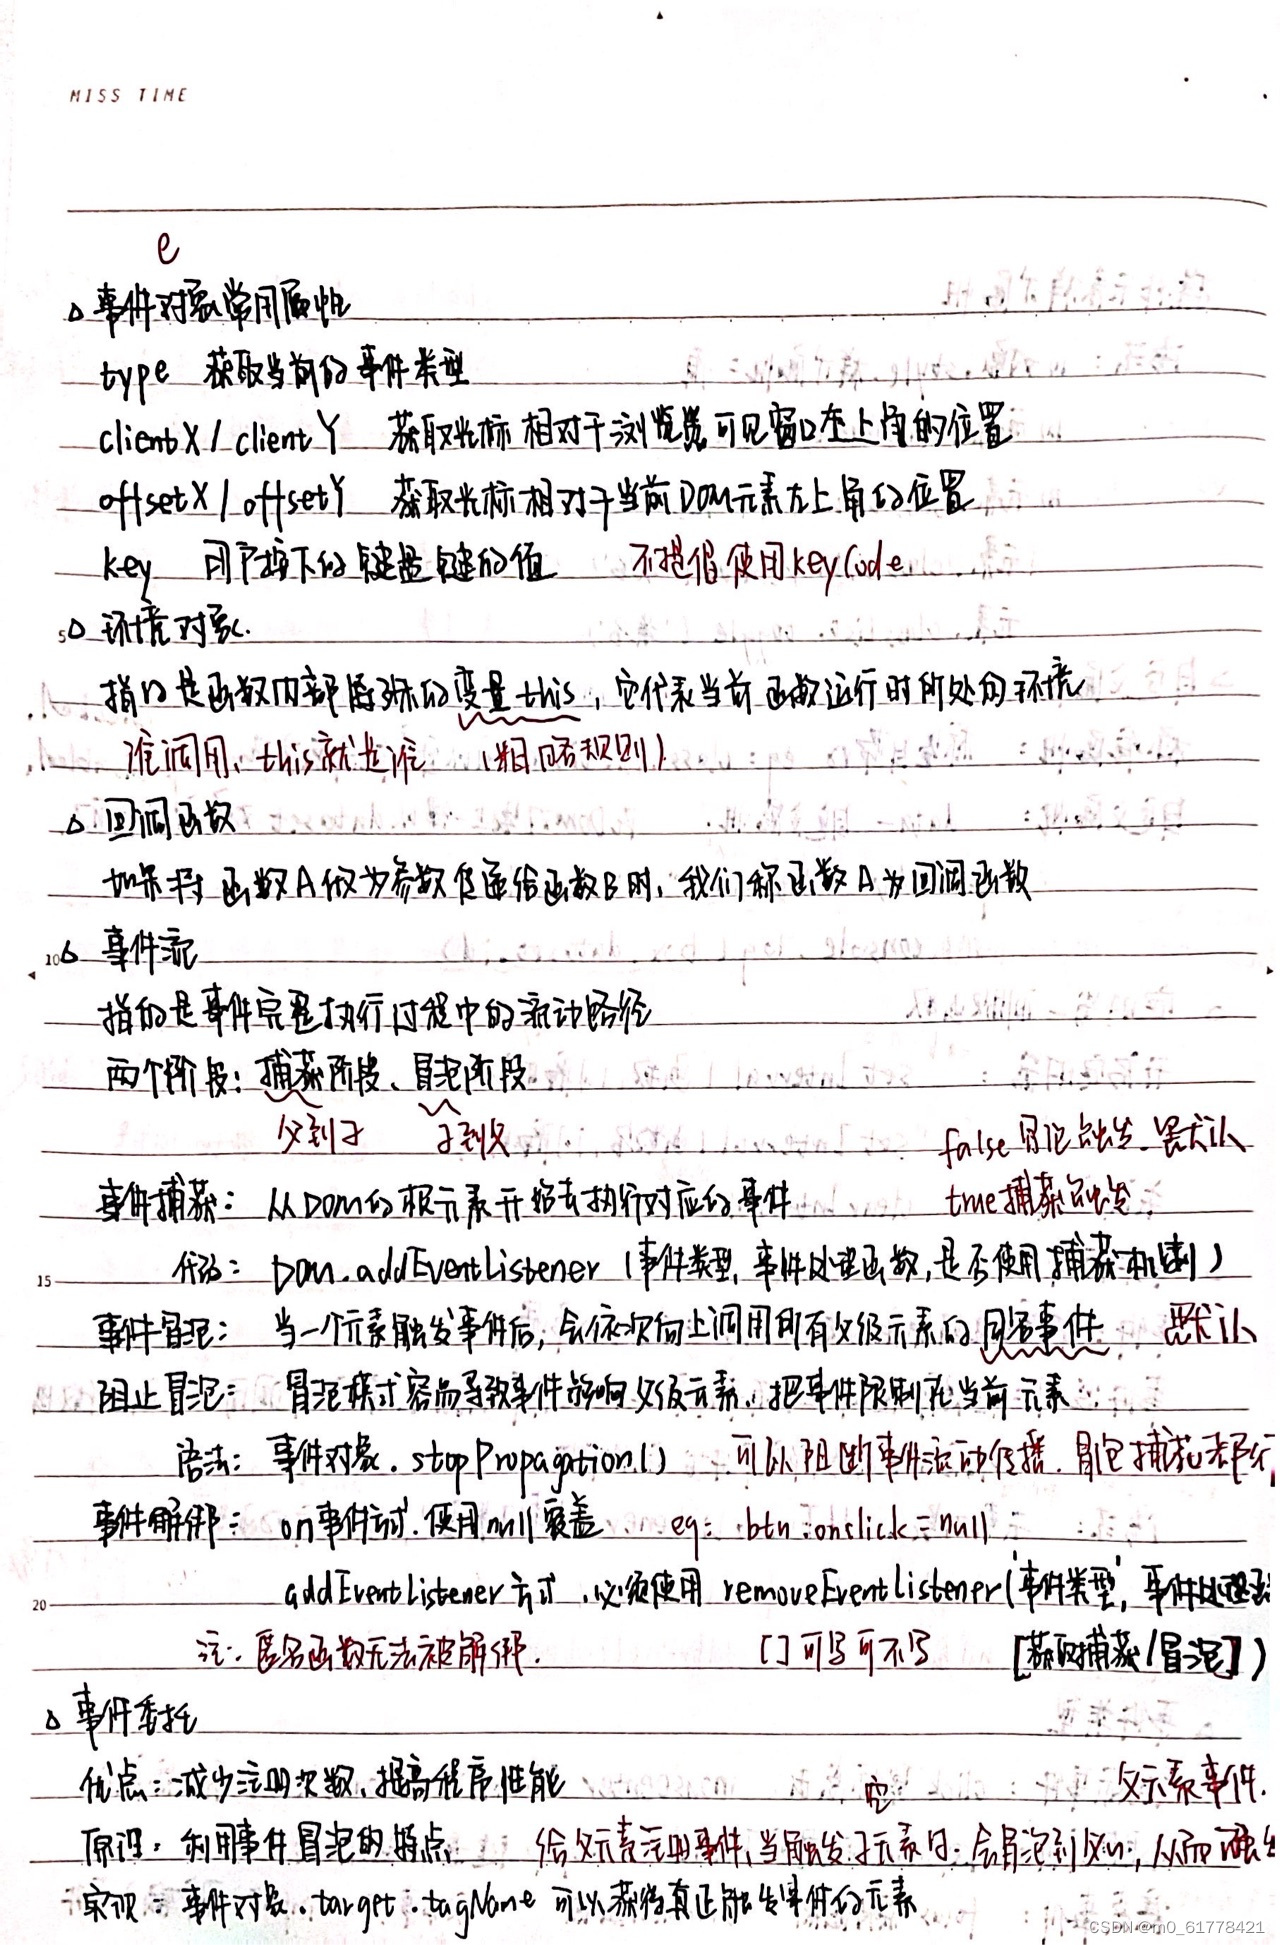 MISS TIME
e
△ 事件对象常用属性
type 获取当前的事件类型
clientX / clientY 获取光标相对于浏览器可见窗口左上角的位置
offsetX / offsetY 获取光标相对于当前DOM元素左上角的位置
key 用户按下的键盘键的值 不提倡使用keyCode
5 △ 环境对象.
指的是函数内部特殊的变量this,它代表当前函数运行时所处的环境
谁调用、this就是谁 (粗略规则)
△ 回调函数
如果将函数A做为参数传递给函数B时,我们称函数A为回调函数
10 △ 事件流
指的是事件完整执行过程中的流动路径
两个阶段: 捕获阶段、冒泡阶段
父到子 子到父 false 冒泡触发 默认
事件捕获: 从DOM的根元素开始去执行对应的事件 true 捕获触发
15 代码: DOM.addEventListener (事件类型,事件处理函数,是否使用捕获机制)
事件冒泡: 当一个元素触发事件后,会依次向上调用所有父级元素的同名事件 默认
阻止冒泡: 冒泡模式容易导致事件影响父级元素、把事件限制在当前元素
语法: 事件对象.stopPropagation() 可以阻断事件流动传播.冒泡捕获都行
事件解绑: on事件方式.使用null覆盖 eg: btn.onclick=null
20 addEventListener方式.必须使用 removeEventListener('事件类型', 事件处理函
注: 匿名函数无法被解绑. [] 可写可不写 [获取捕获/冒泡])
△ 事件委托
优点:减少注册次数、提高程序性能 父元素事件.
原理: 利用事件冒泡的特点 给父元素注册事件,当触发子元素时,会冒泡到父, 从而触发
实现: 事件对象.target.tagName 可以获得真正触发事件的元素
CSDN @m0_61778421